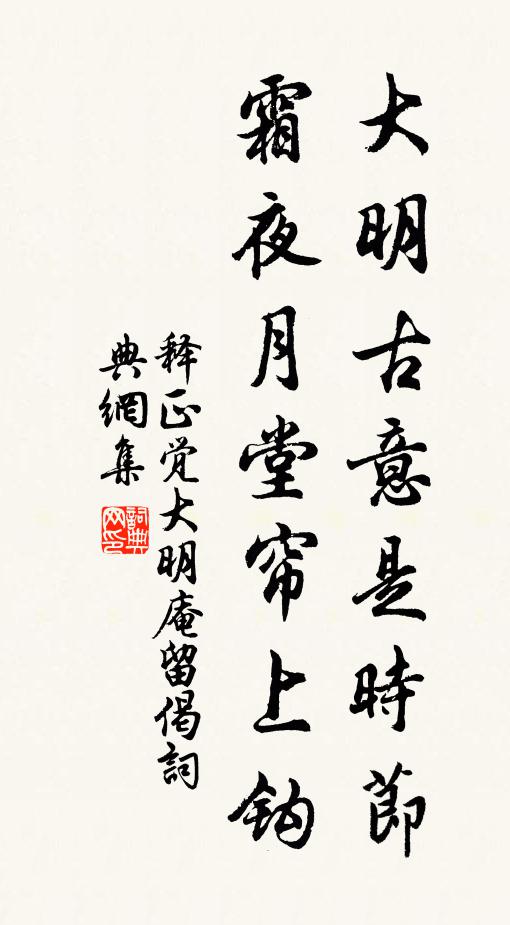 大明古意是時節
霜夜月堂帘上鈎
释正覚大明庵留偈詞
典網集
詞典网印